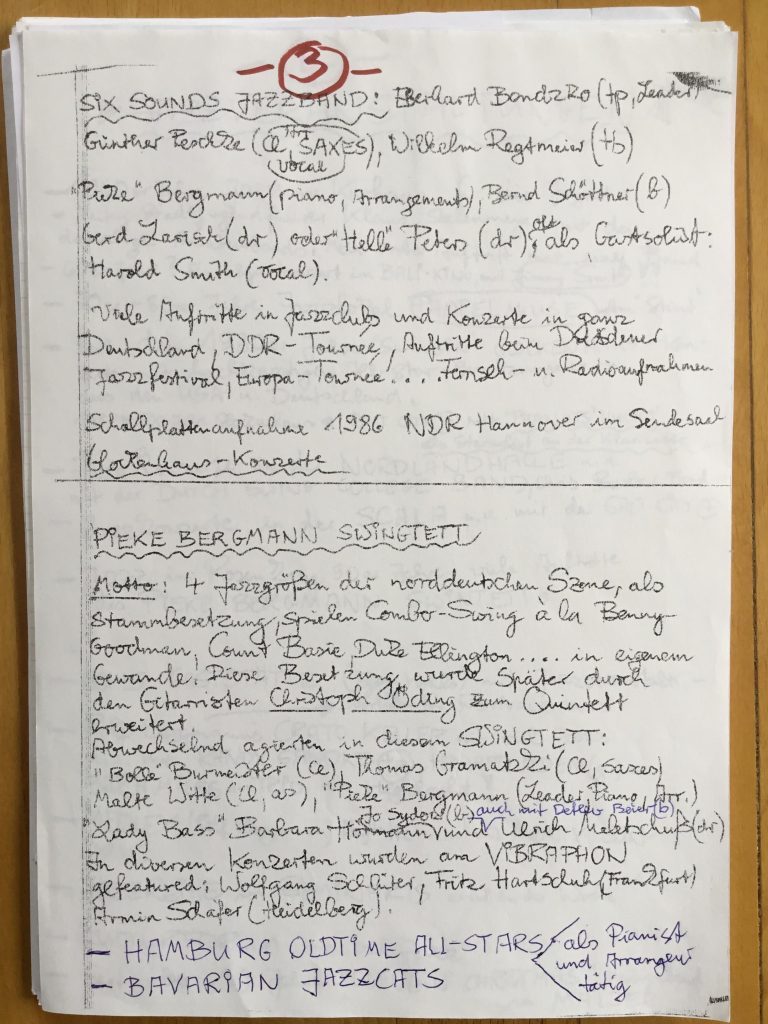 - 3 -
SIX SOUNDS JAZZBAND: Eberhard Bondzko (tp, Leader)
Günther Peschke (Cl, SAXES), Wilhelm Regtmeier (tb)
vocal
"Pieke" Bergmann (piano, Arrangements), Bernd Schöttner (b)
Gerd Larisch (dr) oder "Helle" Peters (dr), oft als Gastsolist:
Harold Smith (vocal).
Viele Auftritte in Jazzclubs und Konzerte in ganz
Deutschland, DDR-Tournee, Auftritte beim Dresdener
Jazzfestival, Europa-Tournee.... Fernseh- u. Radioaufnahmen
Schallplattenaufnahme 1986 NDR Hannover im Sendesaal
Glockenhaus-Konzerte
PIEKE BERGMANN SWINGTETT
Motto: 4 Jazzgrößen der norddeutschen Szene, als
Stammbesetzung, spielen Combo-Swing à la Benny-
Goodman, Count Basie, Duke Ellington.... in eigenem
Gewande. Diese Besetzung wurde später durch
den Gitarristen Christoph Öding zum Quintett
erweitert.
Abwechselnd agierten in diesem SWINGTETT:
"Bolle" Burmeister (Cl), Thomas Gramatzki (Cl, Saxes)
Malte Witte (Cl, as), "Pieke" Bergmann (Leader, Piano, Arr.)
Jo Sydow (b) auch mit Detlev Beier (b)
"Lady Bass" Barbara Hörmann und Ulrich (dr)
In diversen Konzerten wurden am VIBRAPHON
gefeatured: Wolfgang Schlüter, Fritz Hartschuh (Frankfurt)
Armin Schäfer (Heidelberg).
- HAMBURG OLDTIME ALL-STARS
- BAVARIAN JAZZCATS
als Pianist
und Arrangeur
tätig